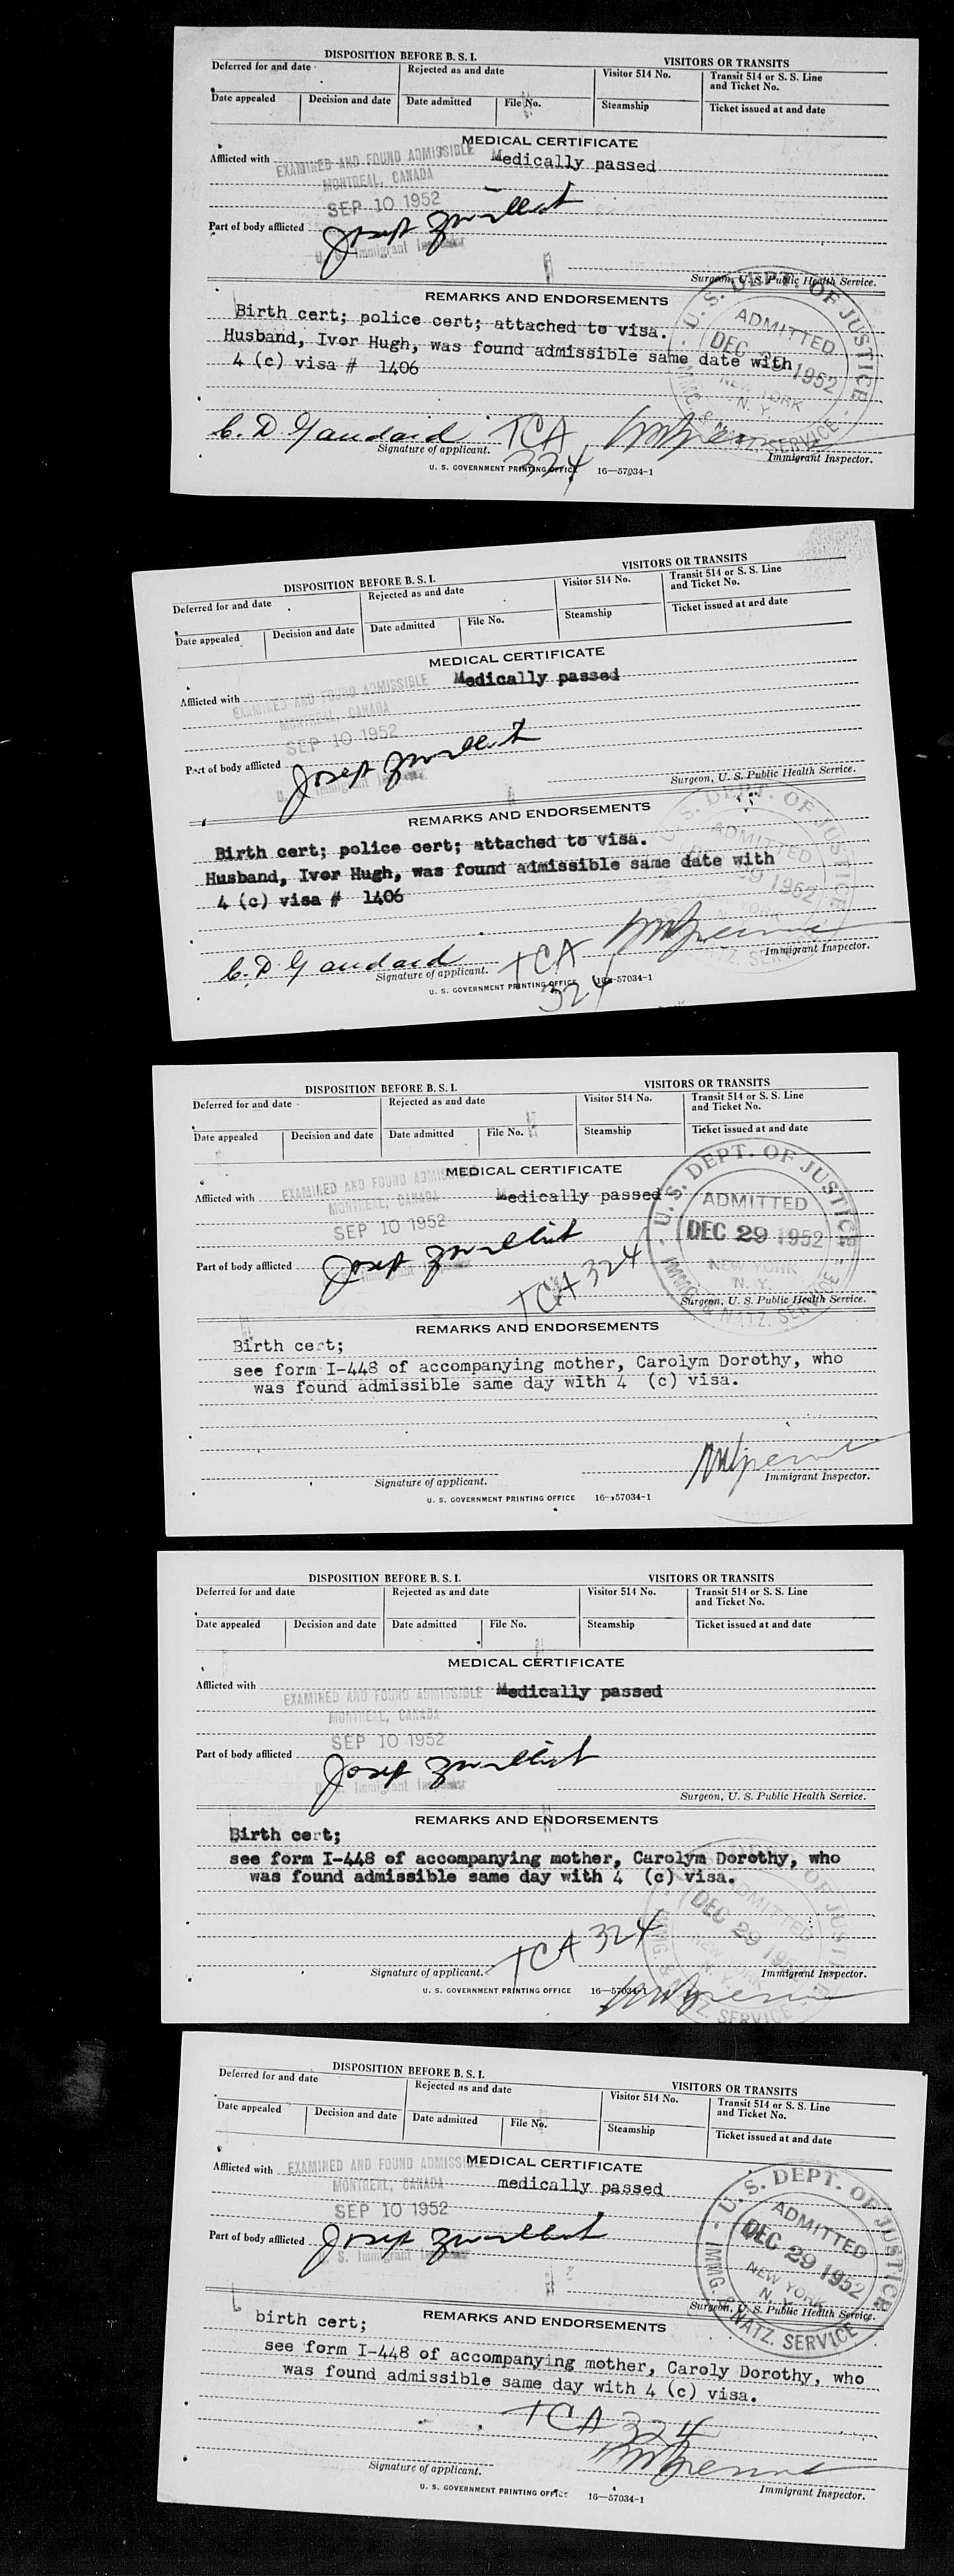 DISPOSITION BEFORE B. S. I.
VISITORS OR TRANSITS
Deferred for and date
Rejected as and date
Visitor 514 No.
Transit 514 or S. S. Line
and Ticket No.
Date appealed
Decision and date
Date admitted
File No.
Steamship
Ticket issued at and date
MEDICAL CERTIFICATE
Afflicted with
EXAMINED AND FOUND ADMISSIBLE
Medically passed
MONTREAL, CANADA
SEP 10 1952
Part of body afflicted
Josep
U. S. Immigrant Inspector
Surgeon, U. S. Public Health Service.
REMARKS AND ENDORSEMENTS
Birth cert; police cert; attached to visa.
Husband, Ivor Hugh, was found admissible same date with
4 (c) visa # 1406
U. S. DEPT. OF JUSTICE
ADMITTED
DEC 29 1952
NEW YORK
N. Y.
IMMIG. & NATZ. SERVICE
C. D. Gaudard
TCA
324
Signature of applicant.
Immigrant Inspector.
U. S. GOVERNMENT PRINTING OFFICE 16—57034-1
DISPOSITION BEFORE B. S. I.
VISITORS OR TRANSITS
Deferred for and date
Rejected as and date
Visitor 514 No.
Transit 514 or S. S. Line
and Ticket No.
Date appealed
Decision and date
Date admitted
File No.
Steamship
Ticket issued at and date
MEDICAL CERTIFICATE
Afflicted with
EXAMINED AND FOUND ADMISSIBLE
Medically passed
MONTREAL, CANADA
SEP 10 1952
Part of body afflicted
Josep
U. S. Immigrant Inspector
Surgeon, U. S. Public Health Service.
REMARKS AND ENDORSEMENTS
Birth cert; police cert; attached to visa.
Husband, Ivor Hugh, was found admissible same date with
4 (c) visa # 1406
U. S. DEPT. OF JUSTICE
ADMITTED
DEC 29 1952
NEW YORK
N. Y.
NATZ. SERVICE
C. D. Gaudard
TCA
324
Signature of applicant.
Immigrant Inspector.
U. S. GOVERNMENT PRINTING OFFICE 16—57034-1
DISPOSITION BEFORE B. S. I.
VISITORS OR TRANSITS
Deferred for and date
Rejected as and date
Visitor 514 No.
Transit 514 or S. S. Line
and Ticket No.
Date appealed
Decision and date
Date admitted
File No.
Steamship
Ticket issued at and date
MEDICAL CERTIFICATE
Afflicted with
EXAMINED AND FOUND ADMISSIBLE
Medically passed
MONTREAL, CANADA
SEP 10 1952
U. S. DEPT. OF JUSTICE
ADMITTED
DEC 29 1952
NEW YORK
N. Y.
IMMIG. & NATZ. SERVICE
Part of body afflicted
Josep
TCA 324
Surgeon, U. S. Public Health Service.
REMARKS AND ENDORSEMENTS
Birth cert;
see form I-448 of accompanying mother, Carolym Dorothy, who
was found admissible same day with 4 (c) visa.
Signature of applicant.
Immigrant Inspector.
U. S. GOVERNMENT PRINTING OFFICE 16—57034-1
DISPOSITION BEFORE B. S. I.
VISITORS OR TRANSITS
Deferred for and date
Rejected as and date
Visitor 514 No.
Transit 514 or S. S. Line
and Ticket No.
Date appealed
Decision and date
Date admitted
File No.
Steamship
Ticket issued at and date
MEDICAL CERTIFICATE
Afflicted with
EXAMINED AND FOUND ADMISSIBLE
Medically passed
MONTREAL, CANADA
SEP 10 1952
Part of body afflicted
Josep
U. S. Immigrant Inspector
Surgeon, U. S. Public Health Service.
REMARKS AND ENDORSEMENTS
Birth cert;
see form I-448 of accompanying mother, Carolym Dorothy, who
was found admissible same day with 4 (c) visa.
OF JUSTICE
ADMITTED
DEC 29 1952
NEW YORK
N. Y.
IMMIG. & NATZ. SERVICE
TCA 324
Signature of applicant.
Immigrant Inspector.
U. S. GOVERNMENT PRINTING OFFICE 16—57034-1
DISPOSITION BEFORE B. S. I.
VISITORS OR TRANSITS
Deferred for and date
Rejected as and date
Visitor 514 No.
Transit 514 or S. S. Line
and Ticket No.
Date appealed
Decision and date
Date admitted
File No.
Steamship
Ticket issued at and date
MEDICAL CERTIFICATE
Afflicted with
EXAMINED AND FOUND ADMISSIBLE
medically passed
MONTREAL, CANADA
SEP 10 1952
U. S. DEPT. OF JUSTICE
ADMITTED
DEC 29 1952
NEW YORK
N. Y.
IMMIG. & NATZ. SERVICE
Part of body afflicted
Josep
U. S. Immigrant Inspector
Surgeon, U. S. Public Health Service.
REMARKS AND ENDORSEMENTS
birth cert;
see form I-448 of accompanying mother, Caroly Dorothy, who
was found admissible same day with 4 (c) visa.
TCA 324
Signature of applicant.
Immigrant Inspector.
U. S. GOVERNMENT PRINTING OFFICE 16—57034-1